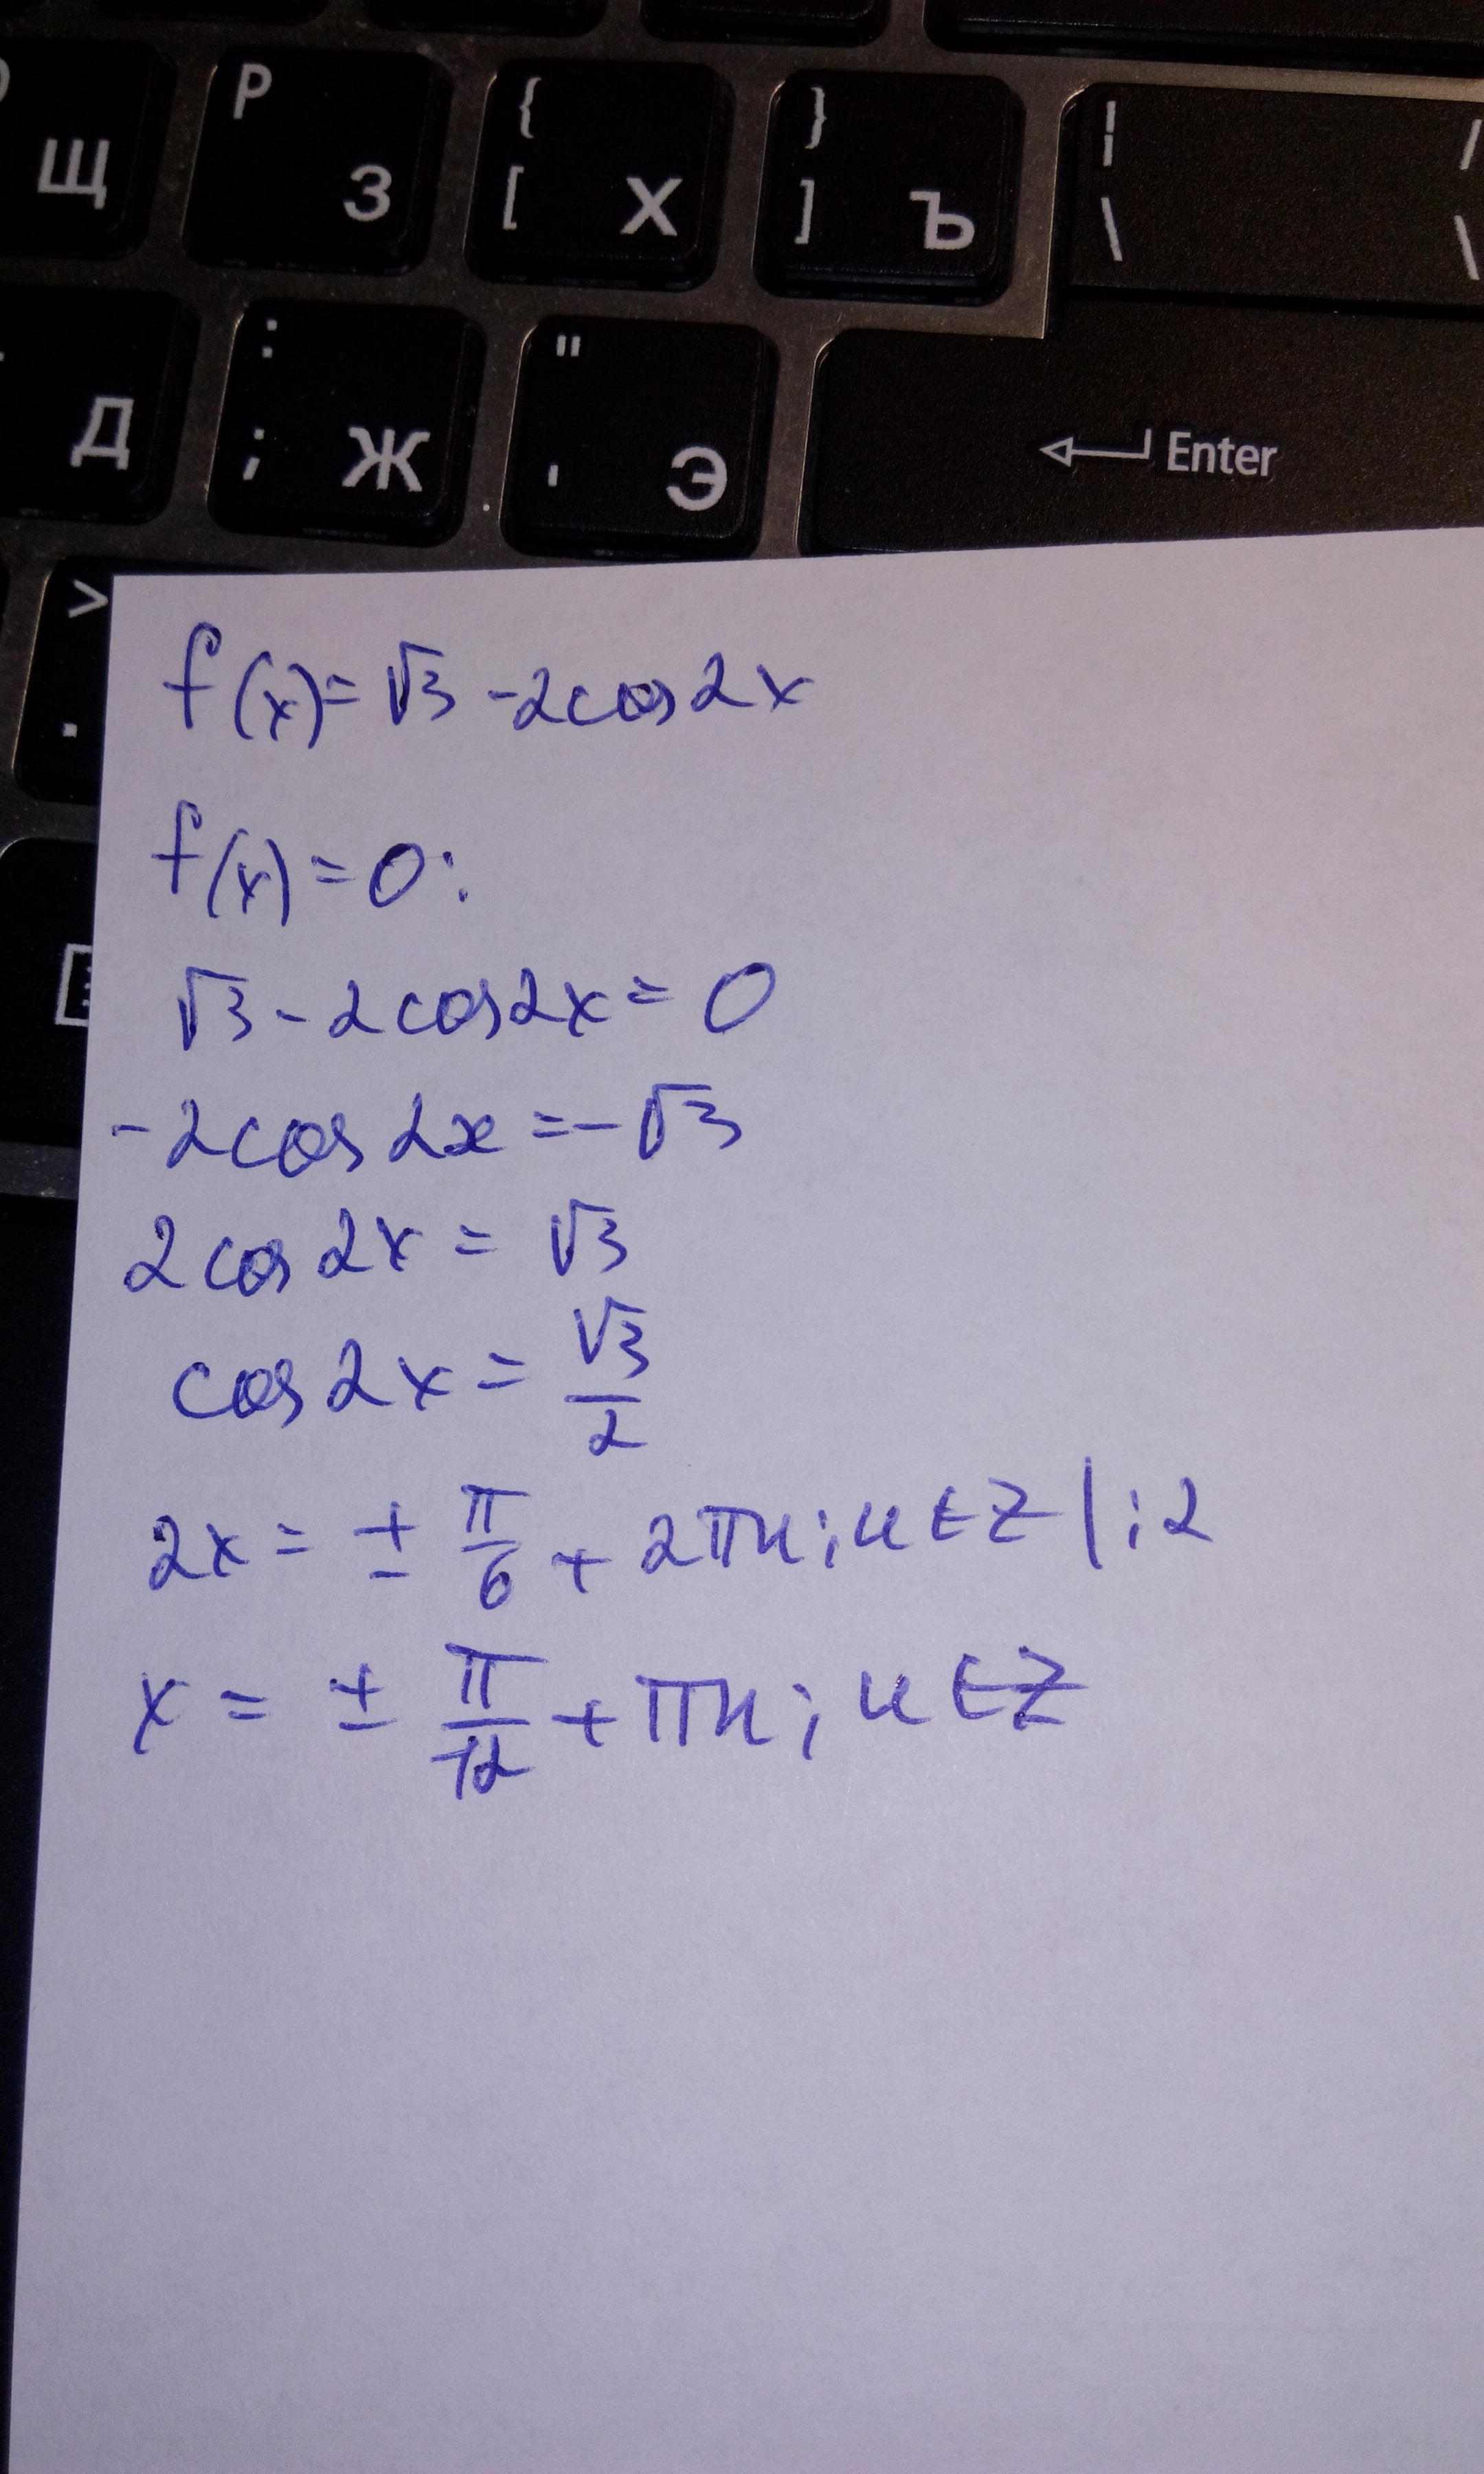 P З { [ Х } ] Ъ | \ / \
Щ
Д : ; Ж " ' Э Enter
> .
f(x)=√3 -2cos2x
f(x)=0:
√3-2cos2x=0
-2cos2x=-√3
2cos2x=√3
cos2x=√3/2
2x=±π/6+2πn; n∈Z |:2
x=±π/12+πn; n∈Z